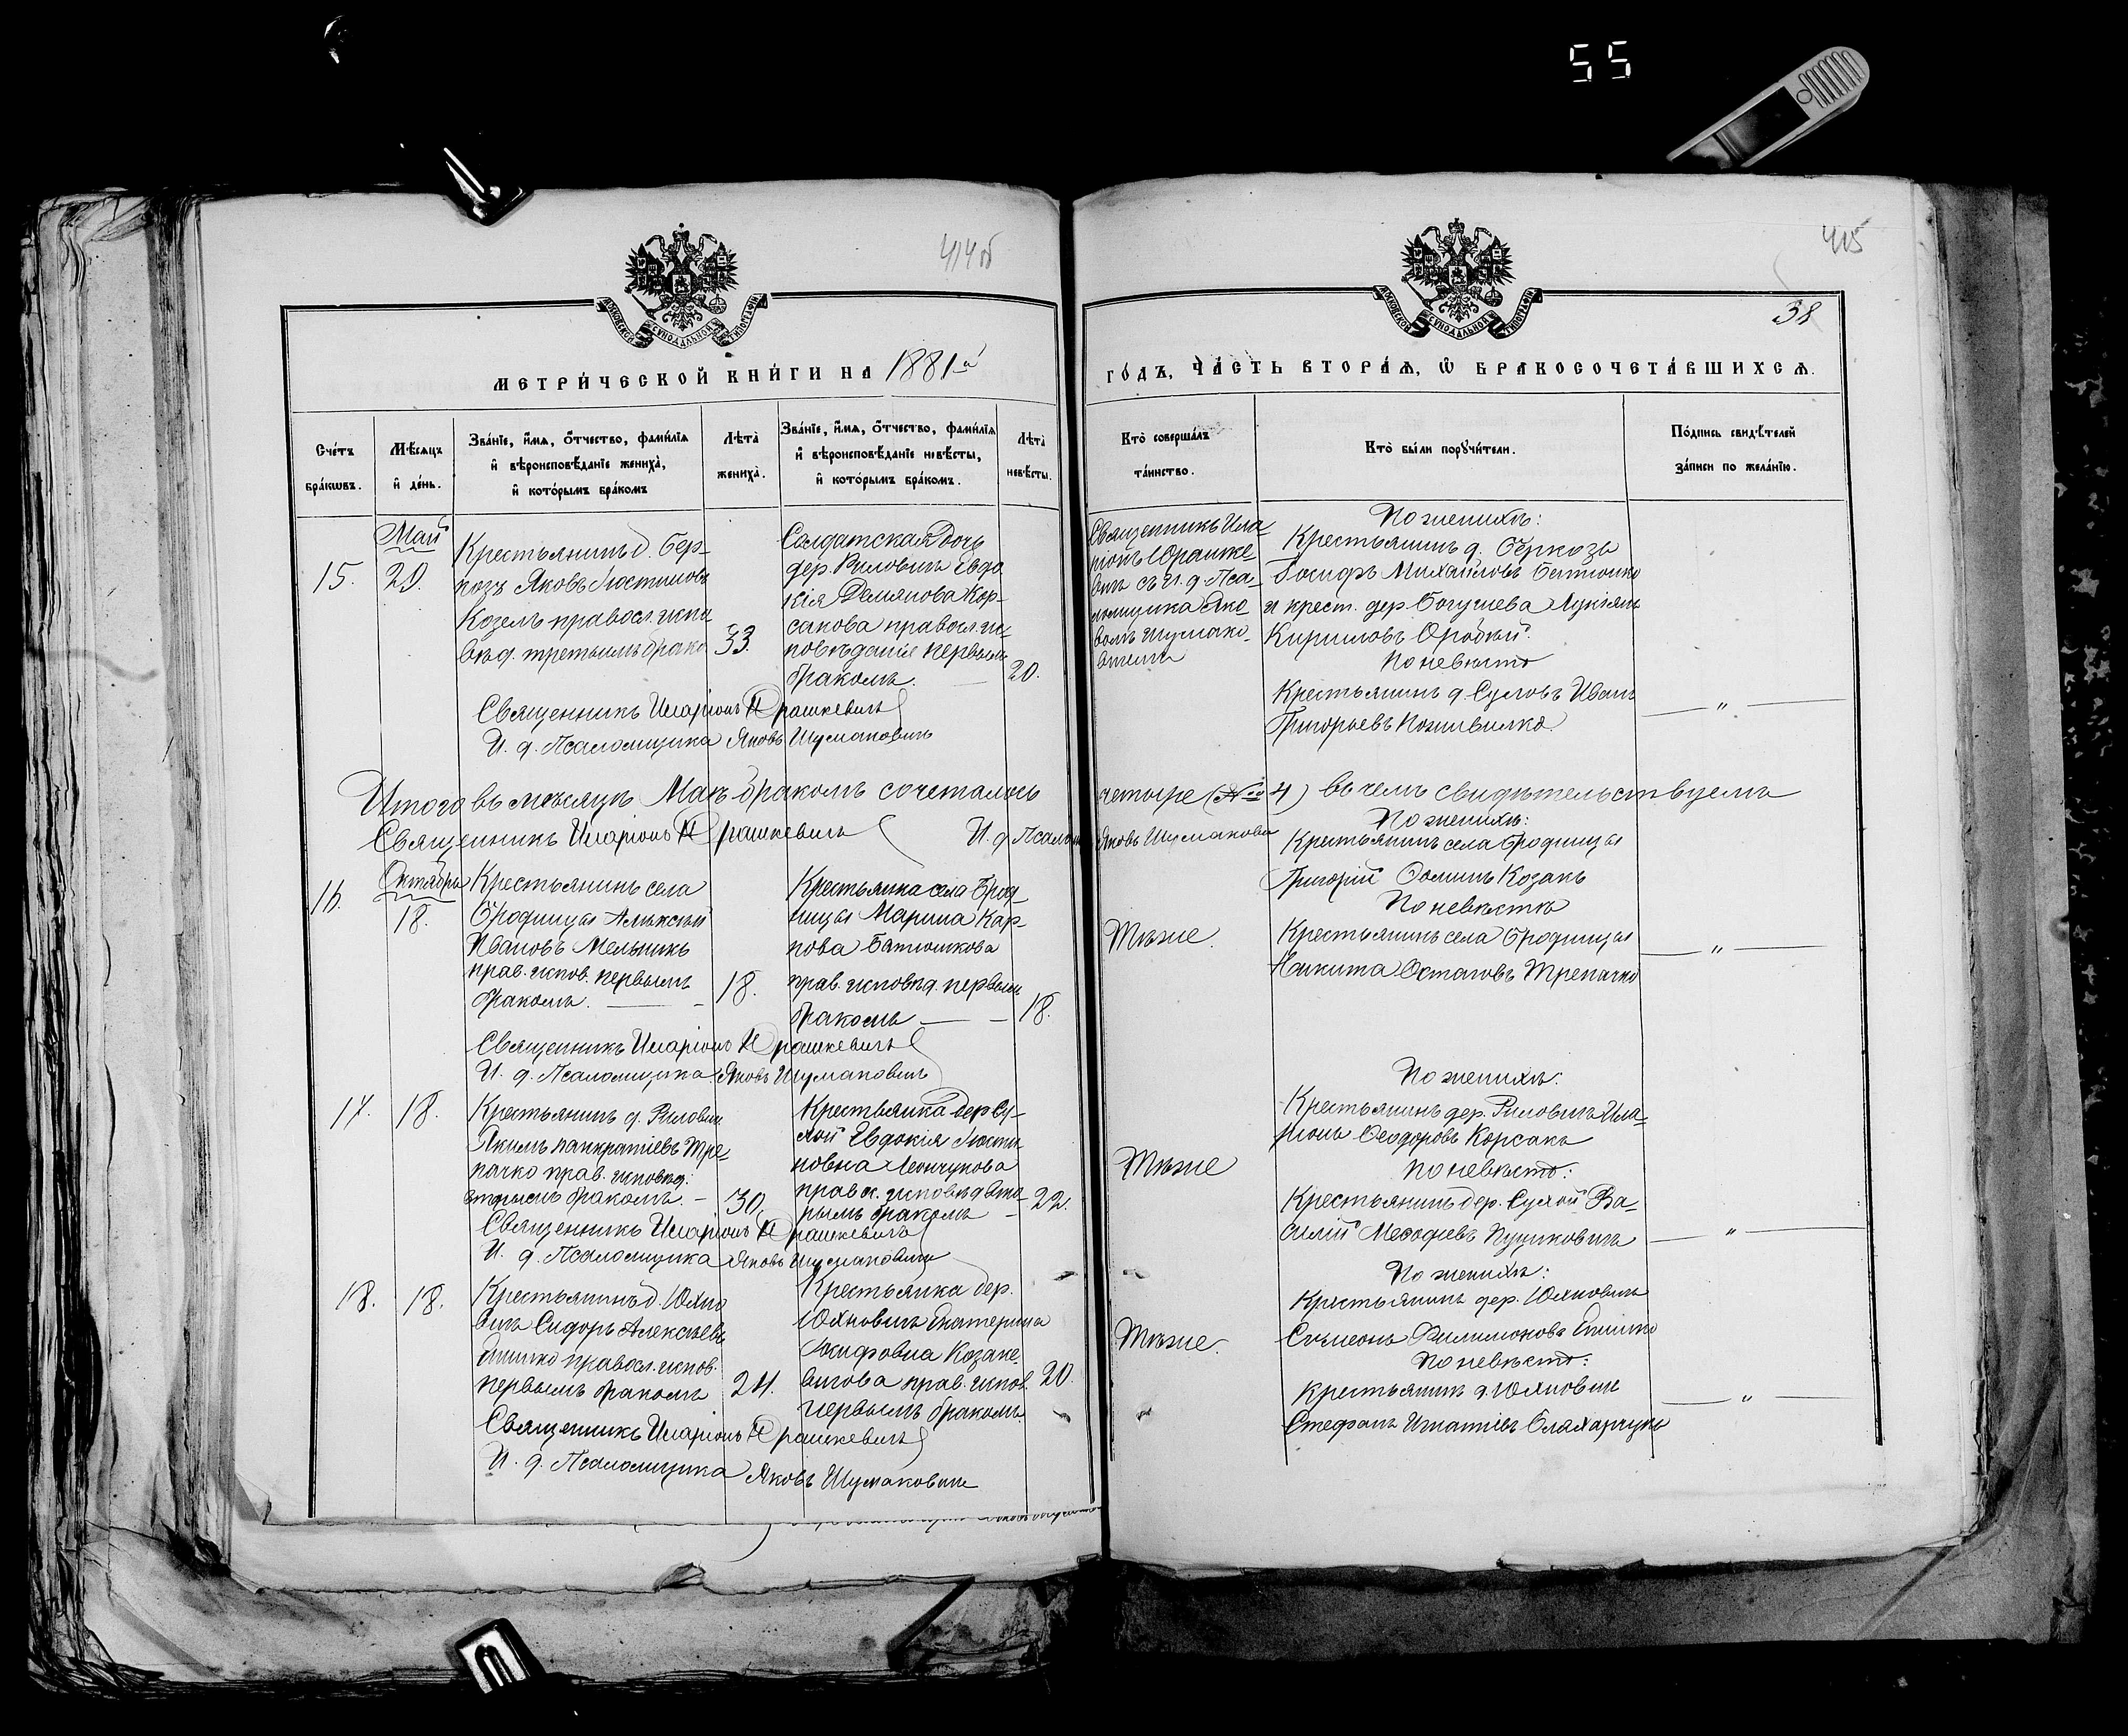 55
414об
415
38
МЕТРИ́ЧЕСКОЙ КНИ́ГИ НА 1881й
ГО́ДЪ, ЧА́СТЬ ВТОРА́Ѧ, Ѽ БРАКОСОЧЕТА́ВШИХСѦ.
Сче́тъ бра́кωвъ.
Мѣ́сяцъ и҆ де́нь.
Зва́нїе, и҆́мѧ, о҆́тчество, фами́лїѧ
и҆ вѣроисповѣ́данїе жениха̀,
и҆ кото́рымъ бра́комъ
Лѣта̀ жениха̀.
Зва́нїе, и҆́мѧ, о҆́тчество, фами́лїѧ
и҆ вѣроисповѣ́данїе невѣ́сты,
и҆ кото́рымъ бра́комъ.
Лѣта̀ невѣ́сты.
Кто̀ соверша́лъ та́инство.
Кто̀ бы́ли порꙋчи́тели.
По́дпись свидѣ́телей за́писи по жела́нїю.
Май
15.
29.
Крестьянинъ д. Бер-
козъ Яковъ Іюстиновъ
Козелъ правосл. испо
вѣд. третьимъ брако
33.
Солдатская дочь
дер. Риловичъ Евдо
кія Демянова Кор-
сакова правосл. ис-
повѣданія первымъ
бракомъ.
20.
Священникъ Ила-
ріонъ Юрашке-
вичъ съ И. д. Пса-
ломщика Яко-
вомъ Шумако-
вичемъ
По женихѣ:
Крестьянинъ д. Беркозъ
Іосифъ Михайловъ Батюшко
и крест. дер. Богушева Лукіянъ
Кириловъ
По невѣстѣ
Крестьянинъ д. Суловъ Иванъ
Григорьевъ
Священникъ Иларіонъ Юрашкевичъ
И. д. Псаломщика Яковъ Шумаковичъ
Итого въ мѣсяцѣ Маѣ бракомъ сочеталось
четыре (№ 4) въ чемъ свидѣтельствуемъ
Священникъ Иларіонъ Юрашкевичъ
И. д. Псалом Яковъ Шумакови
Октябрь
16.
18.
Крестьянинъ села
Бродницы Алексѣй
Ивановъ Мельникъ
прав. испов. первымъ
бракомъ.
18.
Крестьянка села Брод-
ницы Марина Кар-
пова Батюшкова
прав. исповѣд. первымъ
бракомъ
18.
Тѣже.
По женихѣ:
Крестьянинъ села Бродницы
Григорій Фоминъ Козакъ
По невѣстѣ
Крестьянинъ села Бродницы
Никита Остаповъ Трепачко
Священникъ Иларіонъ Юрашкевичъ
И. д. Псаломщика Яковъ Шумаковичъ
17.
18.
Крестьянинъ д. Риловичъ
Якимъ Панкратіевъ Тре-
пачко прав. исповѣд.
вторымъ бракомъ.
30.
Крестьянка дер Су-
хой Евдокія Іюсти
новна Леончукова
правос. исповѣд вто-
рымъ бракомъ
22.
Тѣже
По женихѣ:
Крестьянинъ дер. Риловичъ Ила-
ріонъ Ѳеодоровъ Корсакъ
По невѣстѣ:
Крестьянинъ дер. Сухой Ва-
силій Меѳодіевъ Пушковичъ
Священникъ Иларіонъ Юрашкевичъ
И. д. Псаломщика Яковъ Шумаковичъ
18.
18.
Крестьянинъ д. Юхно
вичъ Сидоръ Алексѣевъ
правосл. испов.
первымъ бракомъ
24.
Крестьянка дер.
Юхновичъ Екатерина
Іосифовна Козаке-
вичова прав. испов.
первымъ бракомъ.
20.
Тѣже.
По женихѣ:
Крестьянинъ дер. Юхновичъ
Сѵмеонъ Филимоновъ
По невѣстѣ:
Крестьянинъ д. Юхновичъ
Стефанъ Игнатіевъ
Священникъ Иларіонъ Юрашкевичъ
И. д. Псаломщика Яковъ Шумаковичъ